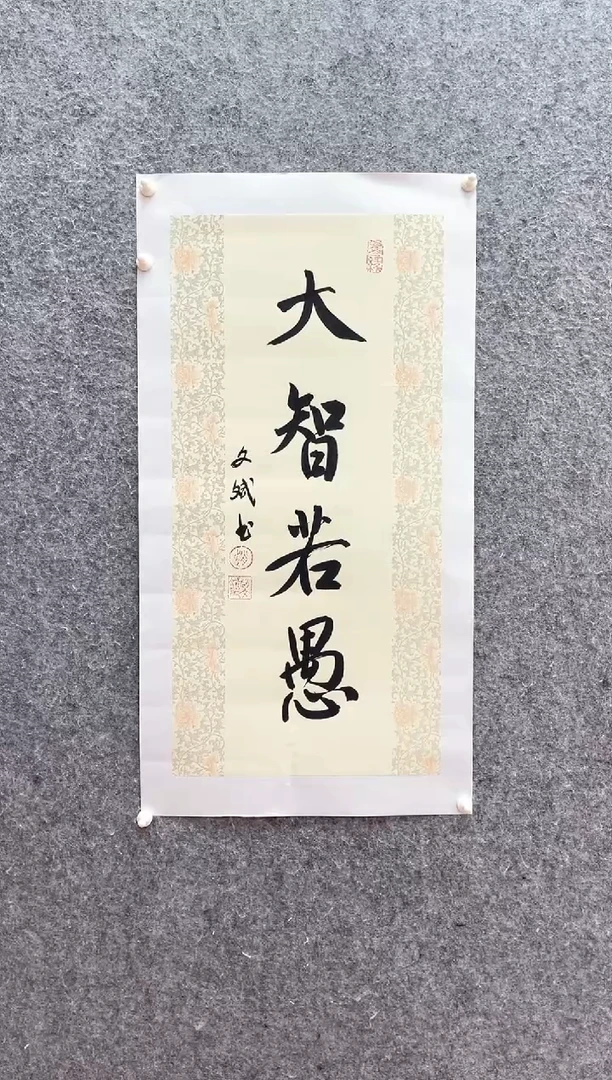 大智若愚
文斌书